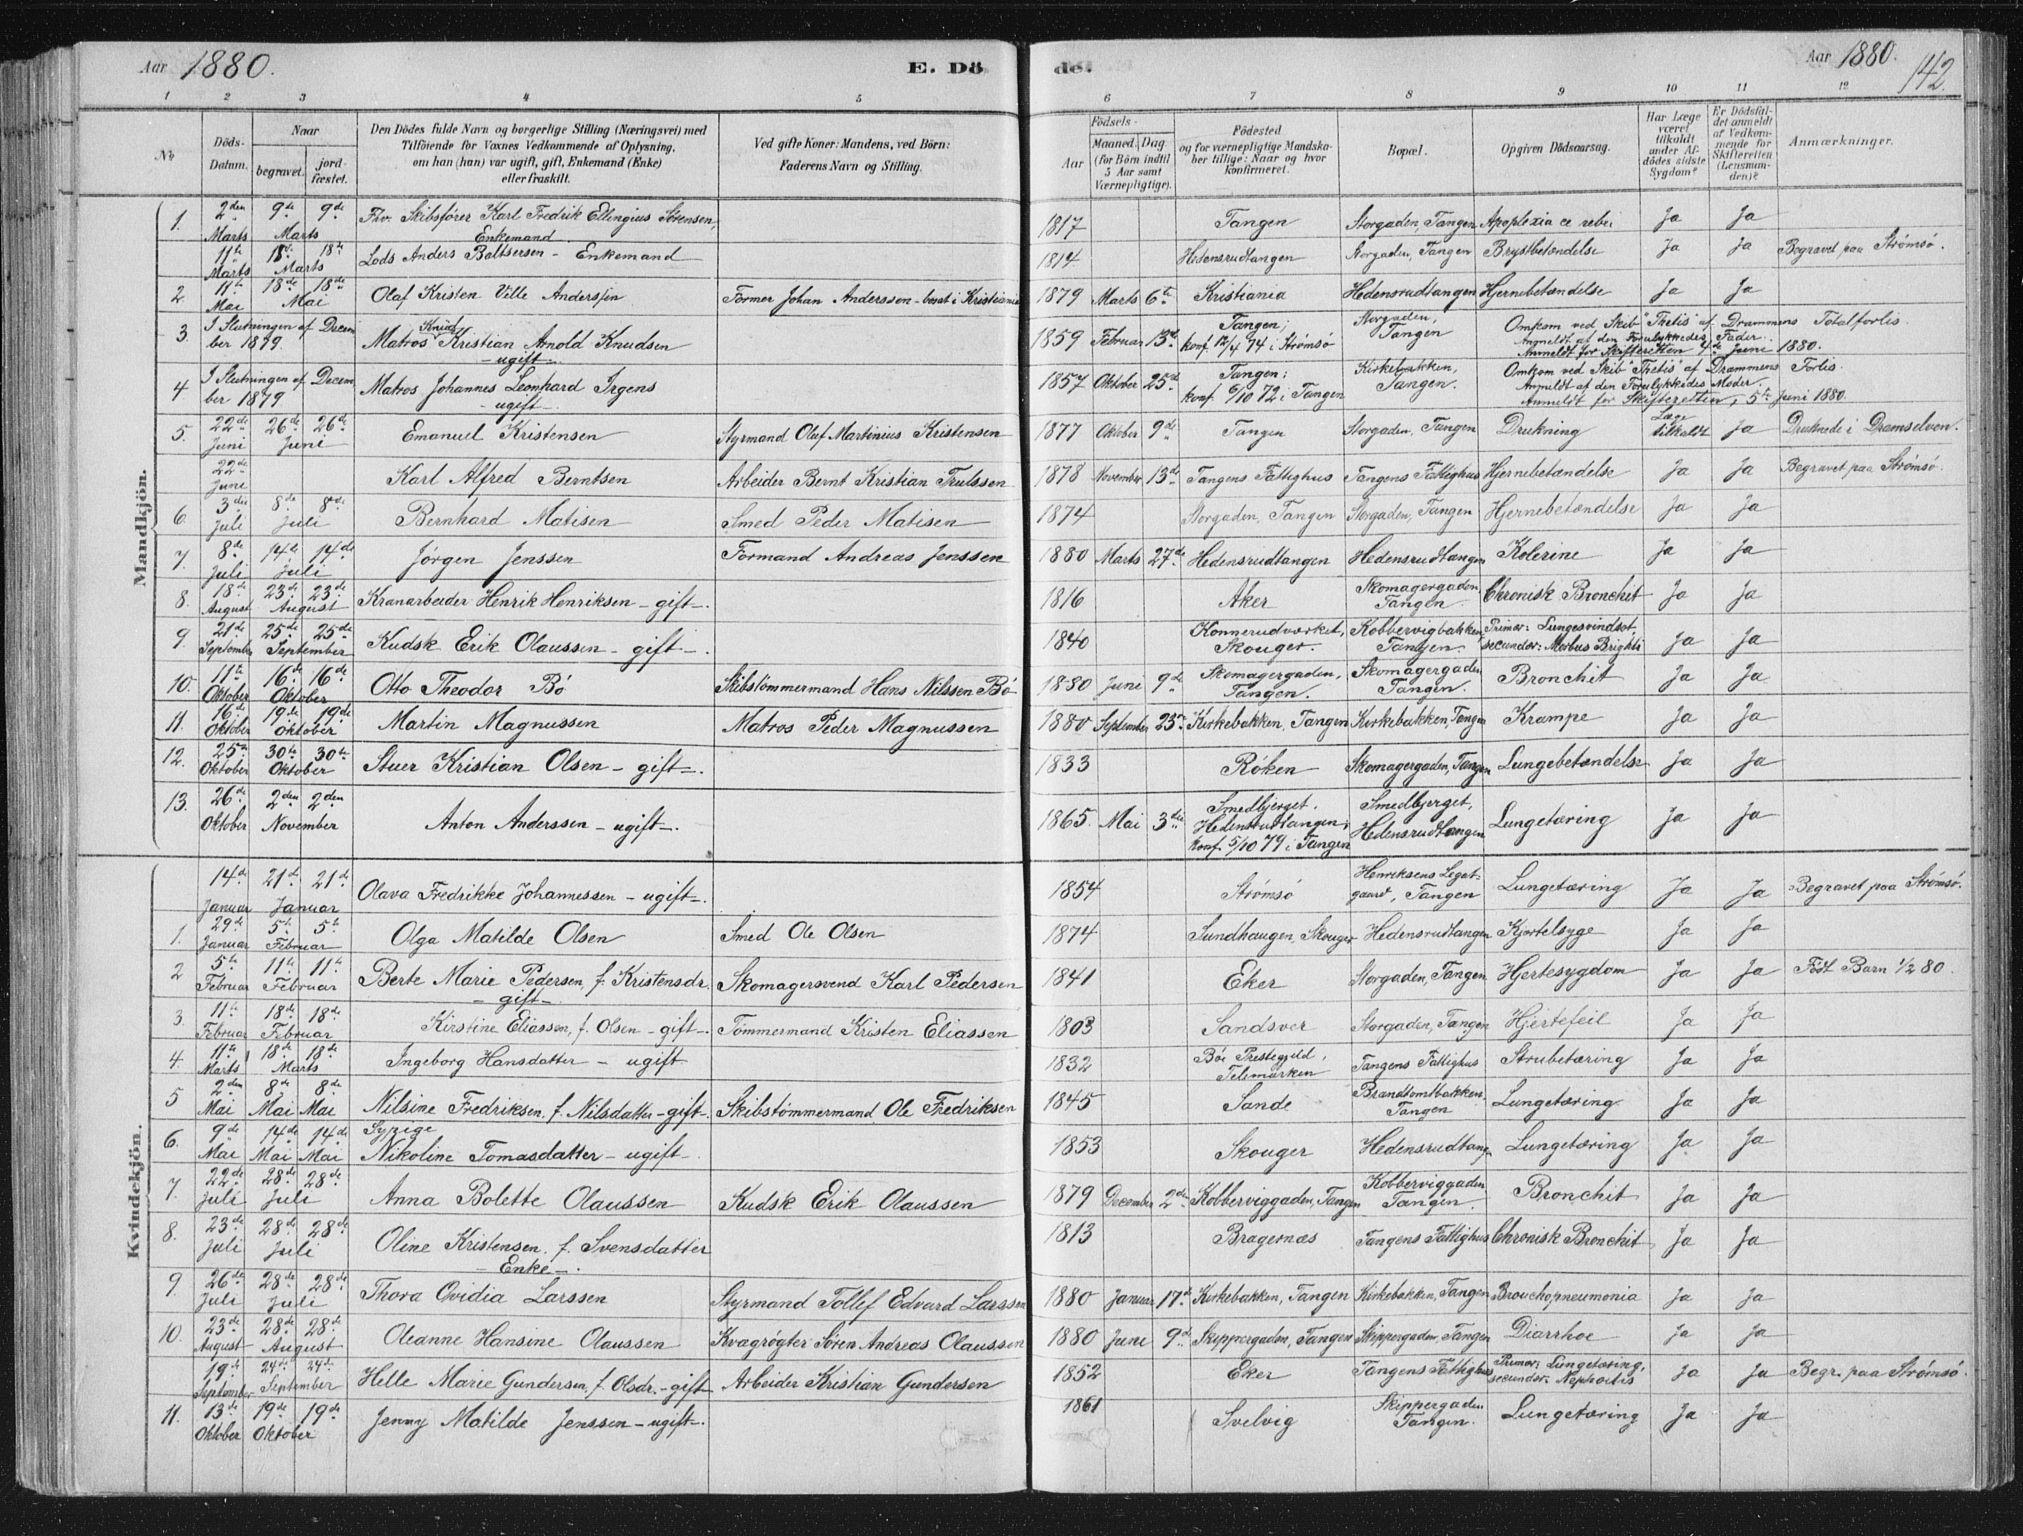 Aar 1880.
E. Dö
de.
Aar 1880.
142.
1 2 3 4 5 6 7 8 9 10 11 12
No
Döds-Datum.
Naar
begravet.
jordfæstet.
Den Dödes fulde Navn og borgerlige Stilling (Næringsvei) med
Tilföiende for Voxnes Vedkommende af Oplysning,
om han (hun) var ugift, gift, Enkemand (Enke)
eller fraskilt.
Ved gifte Koner: Mandens, ved Börn:
Faderens Navn og Stilling.
Födsels-
Aar
Maaned. Dag
(for Börn indtil
5 Aar samt
Værnepligtige).
Födested
og for værnepligtige Mandskaber tillige: Naar og hvor
konfirmeret.
Bopæl.
Opgiven Dödsaarsag.
Har Læge
været
tilkaldt
under Afdödes sidste
Sygdom?
Er Dödsfaldet anmeldt
af Vedkommende for
Skifteretten
(Lensmanden)?
Anmærkninger.
Mandkjön.
1. 2den Marts 9de 9de Marts Fhv. Skibsfører Karl Fredrik Ellingius Sørensen, Enkemand 1817 Tangen Storgaden, Tangen Apoplexia cerebri Ja Ja
11te Marts 18de 18de Marts Lods Anders Baltsersen - Enkemand 1814 Hedensrudtangen Storgaden, Tangen Brystbetændelse Ja Ja Begravet paa Strømsø.
2 11te Mai 18de 18de Mai Olaf Kristen Ville Anderssen Former Johan Andersson - bosat i Kristiania 1879 Marts 6te Kristiania Hedensrudtangen Hjernebetændelse Ja Ja
3. I Slutningen af December 1879. Matros Knud Kristian Arnold Knudsen - ugift - 1859 Februar 13de Tangen; konf. 12/4 74 i Strømsø Storgaden, Tangen Omkom ved Skib "Thetis" af Drammens Totalforlis. Anmeldt af den Forulykkedes Fader. Anmeldt for Skifteretten 4de Juni 1880.
4 I Slutningen af December 1879 Matros Johannes Leonhard Irgens - ugift - 1857 Oktober 25de Tangen; konf. 6/10 72 i Tangen Kirkebakken, Tangen. Omkom ved Skib "Thetis" af Drammens Forlis. Anmeldt af den Forulykkedes Moder. Anmeldt for Skifteretten, 5te Juni 1880.
5. 22de Juni 26de 26de Juni Emanuel Kristensen Styrmand Oluf Martinius Kristensen 1877 Oktober 9de Tangen Storgaden, Tangen Drukning Læge tilkaldt Ja Druknede i Dramselven.
22de Juni Karl Alfred Berntsen Arbeider Bernt Kristian Trulssen 1878 November 13de Tangens Fattighus Tangens Fattighus Hjernebetændelse Ja Ja Begravet paa Strømsø.
6. 3die Juli 8de 8de Juli Bernhard Matisen Smed Peder Matisen 1874 Storgaden, Tangen Storgaden, Tangen Hjernebetændelse Ja Ja
7. 8de Juli 14de 14de Juli Jørgen Jenssen Formand Andreas Jenssen 1880 Marts 27de Hedensrudtangen Hedensrudtangen Kolerine Ja Ja
8. 18de August 23de 23de August Kranarbeider Henrik Henriksen - gift -. 1816 Aker Skomagergaden, Tangen Chronisk Bronchit Ja Ja
9. 21de September 25de 25de September Kudsk Erik Olaussen - gift -. 1840 Konnerudværket, Skouger. Kobbervigbakken, Tangen. Primær: Lungesvindsot secundær: Morbus Brightii Ja Ja
10. 11te Oktober 16de 16de Oktober Otto Theodor Bö Skibstømmermand Hans Nilssen Bö 1880 Juni 9de Skomagergaden, Tangen. Skomagergaden Tangen. Bronchit Ja Ja
11. 16de Oktober 19de 19de Oktober Martin Magnussen Matros Peder Magnussen 1880 September 23de Kirkebakken, Tangen Kirkebakken, Tangen Krampe Ja Ja
12. 25de Oktober 30te 30te Oktober Stuer Kristian Olsen - gift -. 1833 Røken Skomagergaden, Tangen Lungebetændelse Ja Ja
13. 26de Oktober 2den 2den November Anton Anderssen - ugift -. 1865. Mai 3die Smedbjerget, Hedensrudtangen; konf. 5/10 79 i Tangen Smedbjerget, Hedensrudtangen Lungetæring Ja Ja
Kvindekjön.
14de Januar 21de 21de Januar Olava Fredrikke Johannessen - ugift -. 1854 Strømsø Henriksens Legatgaard, Tangen Lungetæring Ja Ja Begravet paa Strømsø.
1. 29de Januar 5te 5te Februar Olga Matilde Olsen Smed Ole Olsen 1874 Sundhaugen, Skouger Hedensrudtangen Kjertelsyge Ja Ja
2 5te Februar 11te 11te Februar Berte Marie Pedersen, f. Kristensdr. - gift - Skomagersvend Karl Pedersen 1841 Eker Storgaden, Tangen Hjertesygdom Ja Ja Födt Barn 1/2 80.
3. 11te Februar 18de 18de Februar Kirstine Eliassen, f. Olsen - gift -. Tømmermand Kristen Eliassen 1803 Sandsver Storgaden, Tangen Hjertefeil Ja Ja
4. 11te Marts 18de 18de Marts Ingeborg Hansdatter - ugift 1832 Bøe Prestegjeld, Telemarken Tangens Fattighus Strubetæring Ja Ja
5 2den Mai 8de Mai 8de Mai Nilsine Fredriksen, f. Nilsdatter - gift -. Skibstømmermand Ole Fredriksen 1845 Sande Brandtomtbakken, Tangen Lungetæring Ja Ja
6. 9de Mai 14de Mai 14de Mai Sypige Nikoline Tomasdatter - ugift -. 1853 Skouger Hedensrudtang. Lungetæring Ja Ja
7. 22de Juli 28de 28de Juli Anna Bolette Olaussen Kudsk Erik Olaussen 1879 December 2den Kobberviggaden, Tangen Kobberviggaden Tangen. Bronchit Ja Ja
8. 23de Juli 28de 28de Juli Oline Kristensen, f. Svensdatter - Enke -. 1813 Bragernæs Tangens Fattighus Chronisk Bronchit Ja Ja
9. 26de Juli 28de 28de Juli Thora Ovidia Larssen Styrmand Tollef Edvard Larssen 1880 Januar 17de Kirkebakken, Tangen Kirkebakken, Tangen Bronchopneumonia Ja Ja
10. 23de August 28de 28de August Oleanne Hansine Olaussen Kvægrøgter Søren Andreas Olaussen 1880 Juni 9de Skippergaden, Tangen Skippergaden, Tangen Diarrhoe Ja Ja
19de September 24de 24de September Helle Marie Gundersen, f. Olsdr. - gift Arbeider Kristian Gundersen 1852 Eker Tangens Fattighus Primær: Lungetæring, secundær: Nephritis Ja Ja Begr. paa Strømsø.
11. 13de Oktober 19de 19de Oktober Jenny Matilde Jenssen - ugift -. 1861 Svelvig Skippergaden Tangen. Lungetæring Ja Ja